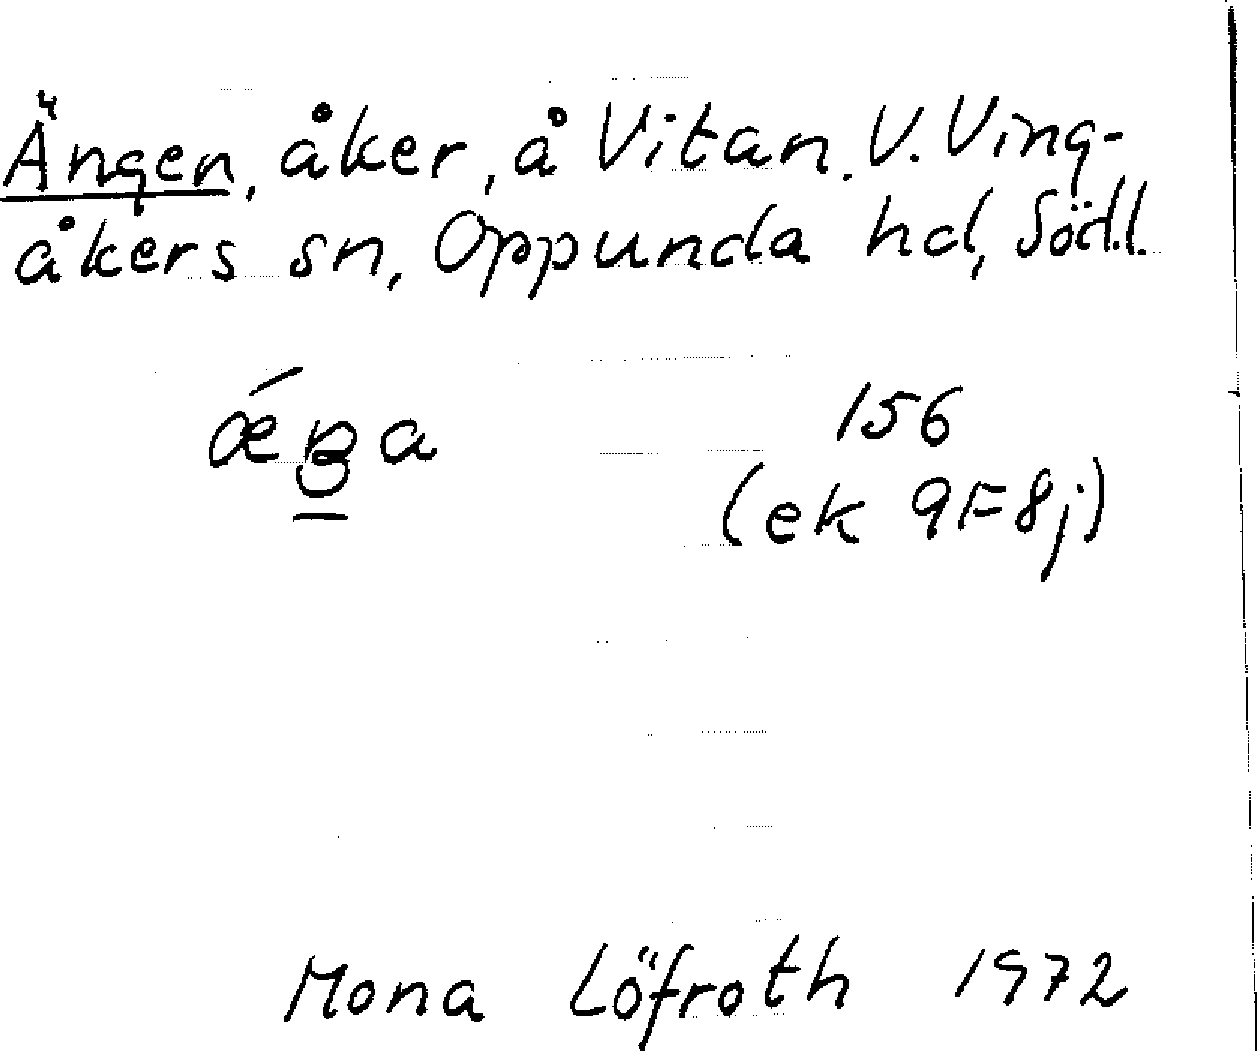 Ängen, åker, å Vitan. V. Ving-
åkers sn, Oppunda hd, Södl.
156
(ek 9F8j)
Mona Löfroth 1972